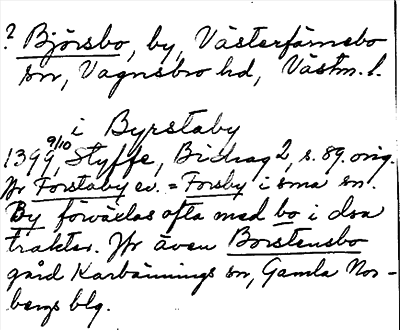 ? Björsbo, by, Västerfärnebo
sn, Vagnsbro hd, Västm. l.
i Byrstaby
1399 9/10, Styffe, Bidrag 2, s. 89. orig.
Jfr Forstaby ev. = Forsby i sma sn.
By förväxlas ofta med bo i dsa
trakter. Jfr även Borstensbo
gård Karbännings sn, Gamla Nor-
bergs blg.